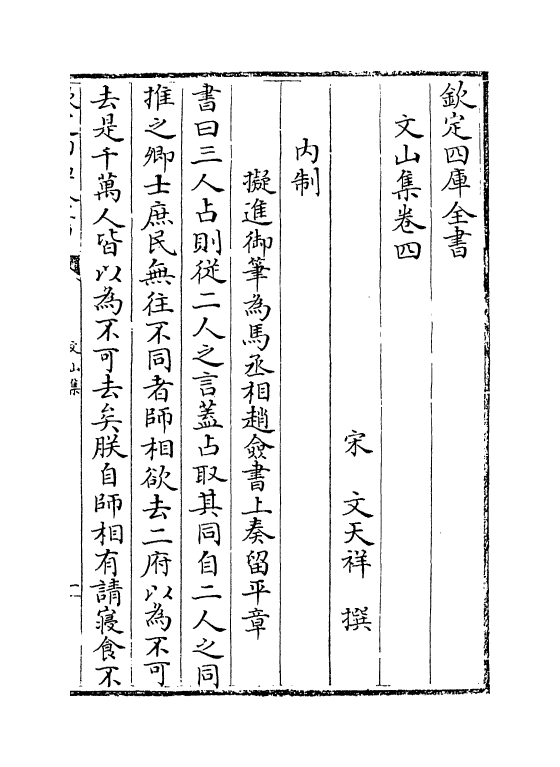 欽定四庫全書
文山集卷四
宋　文天祥　撰
內制
擬進御筆為馬丞相趙僉書上奏留平章
書曰三人占則從二人之言蓋占取其同自二人之同
推之卿士庶民無往不同者師相欲去二府以為不可
去是千萬人皆以為不可去矣朕自師相有請寢食不
文山集
一